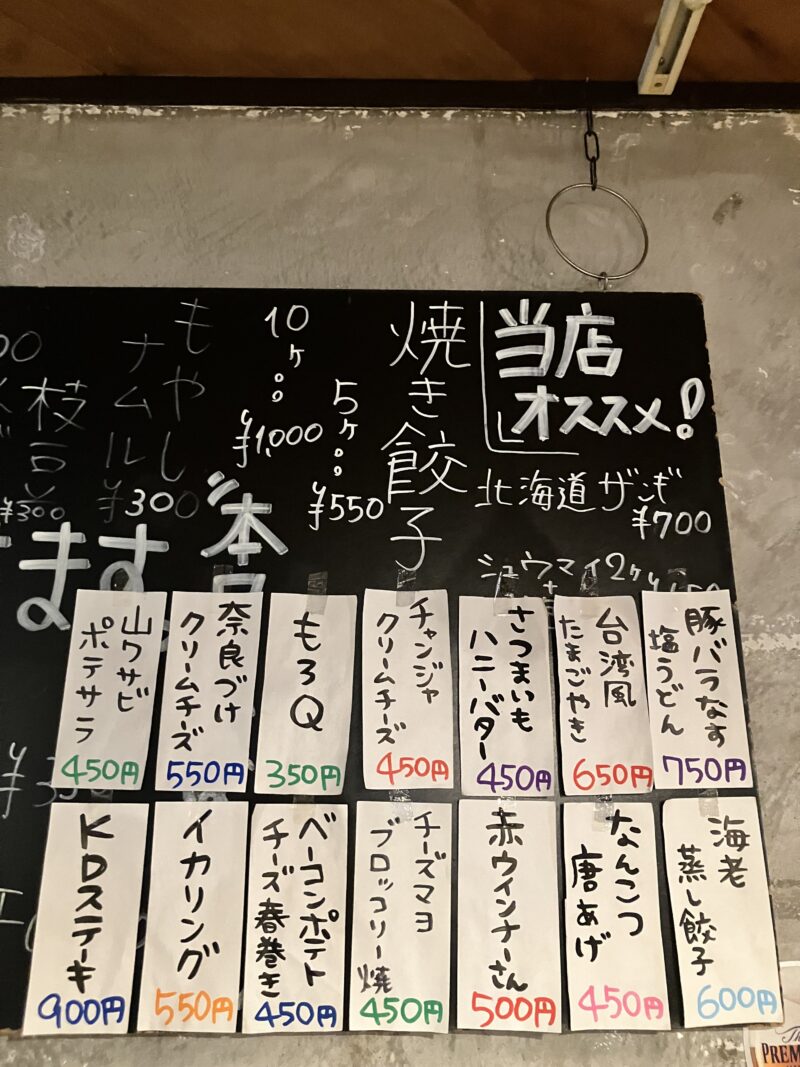 当店
オススメ!
北海道ザンギ
¥700
シュウマイ2ヶ
焼き餃子
5ヶ。。
¥550
10ヶ。。
¥1,000
もやし
ナムル
¥300
枝豆
¥300
ます
本日
豚バラなす
塩うどん
750円
台湾風
たまごやき
650円
さつまいも
ハニーバター
450円
チャンジャ
クリームチーズ
450円
もろQ
350円
奈良づけ
クリームチーズ
550円
山ワサビ
ポテサラ
450円
海老
蒸し餃子
600円
なんこつ
唐あげ
450円
赤ウインナーさん
500円
チーズマヨ
ブロッコリー焼
450円
ベーコンポテト
チーズ春巻き
450円
イカリング
550円
KDステーキ
900円